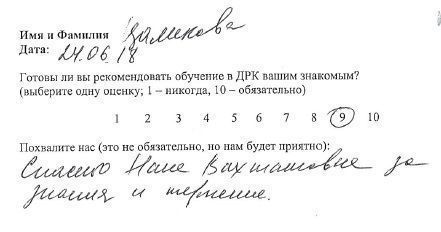 Имя и Фамилия
Дата: 24.06.18
Готовы ли вы рекомендовать обучение в ДРК вашим знакомым?
(выберите одну оценку; 1 – никогда, 10 – обязательно)
1 2 3 4 5 6 7 8 9 10
Похвалите нас (это не обязательно, но нам будет приятно):
Спасибо Нане Вахтанговне за
знания и терпение.